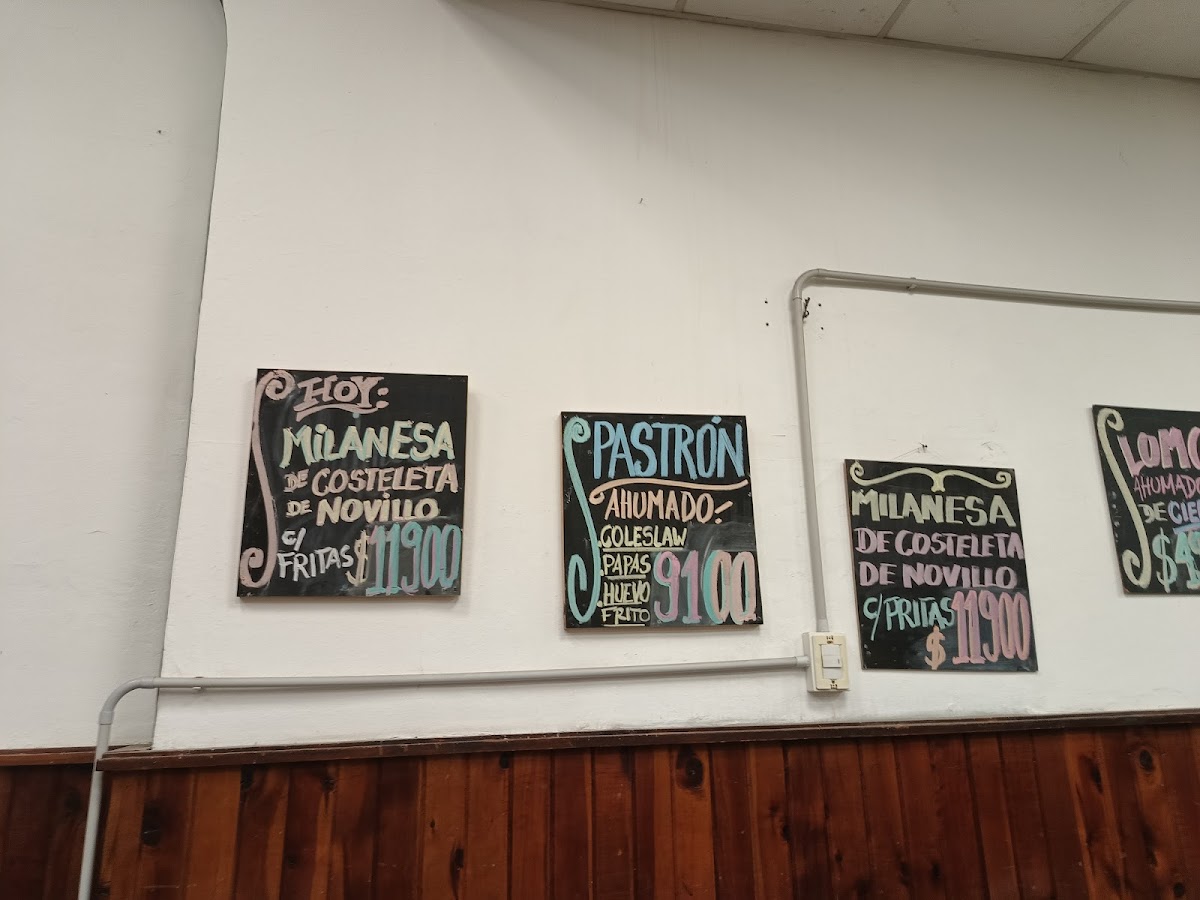 HOY:
MILANESA
DE COSTELETA
DE NOVILLO
C/
FRITAS $11900
PASTRÓN
AHUMADO!
.COLESLAW
.PAPAS
.HUEVO
FRITO 9100
MILANESA
DE COSTELETA
DE NOVILLO
C/PRITAS
$11900
AHUMADO
DE